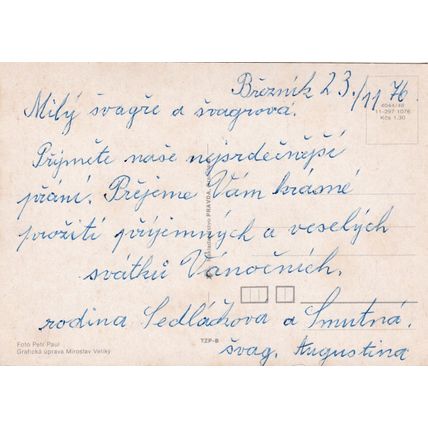 Březník 23./11 76
4044/48
11-297 1076
Kčs 1,30
Milý švagře a švagrová.
Přijměte naše nejsrdečnější
přání. Přejeme Vám krásné
prožití příjemných a veselých
svátků Vánočních.
rodina Sedláčkova a Smutná.
švag. Augustina
Foto Petr Paul
Grafická úprava Miroslav Velíky
TZP-B
PRAVDA